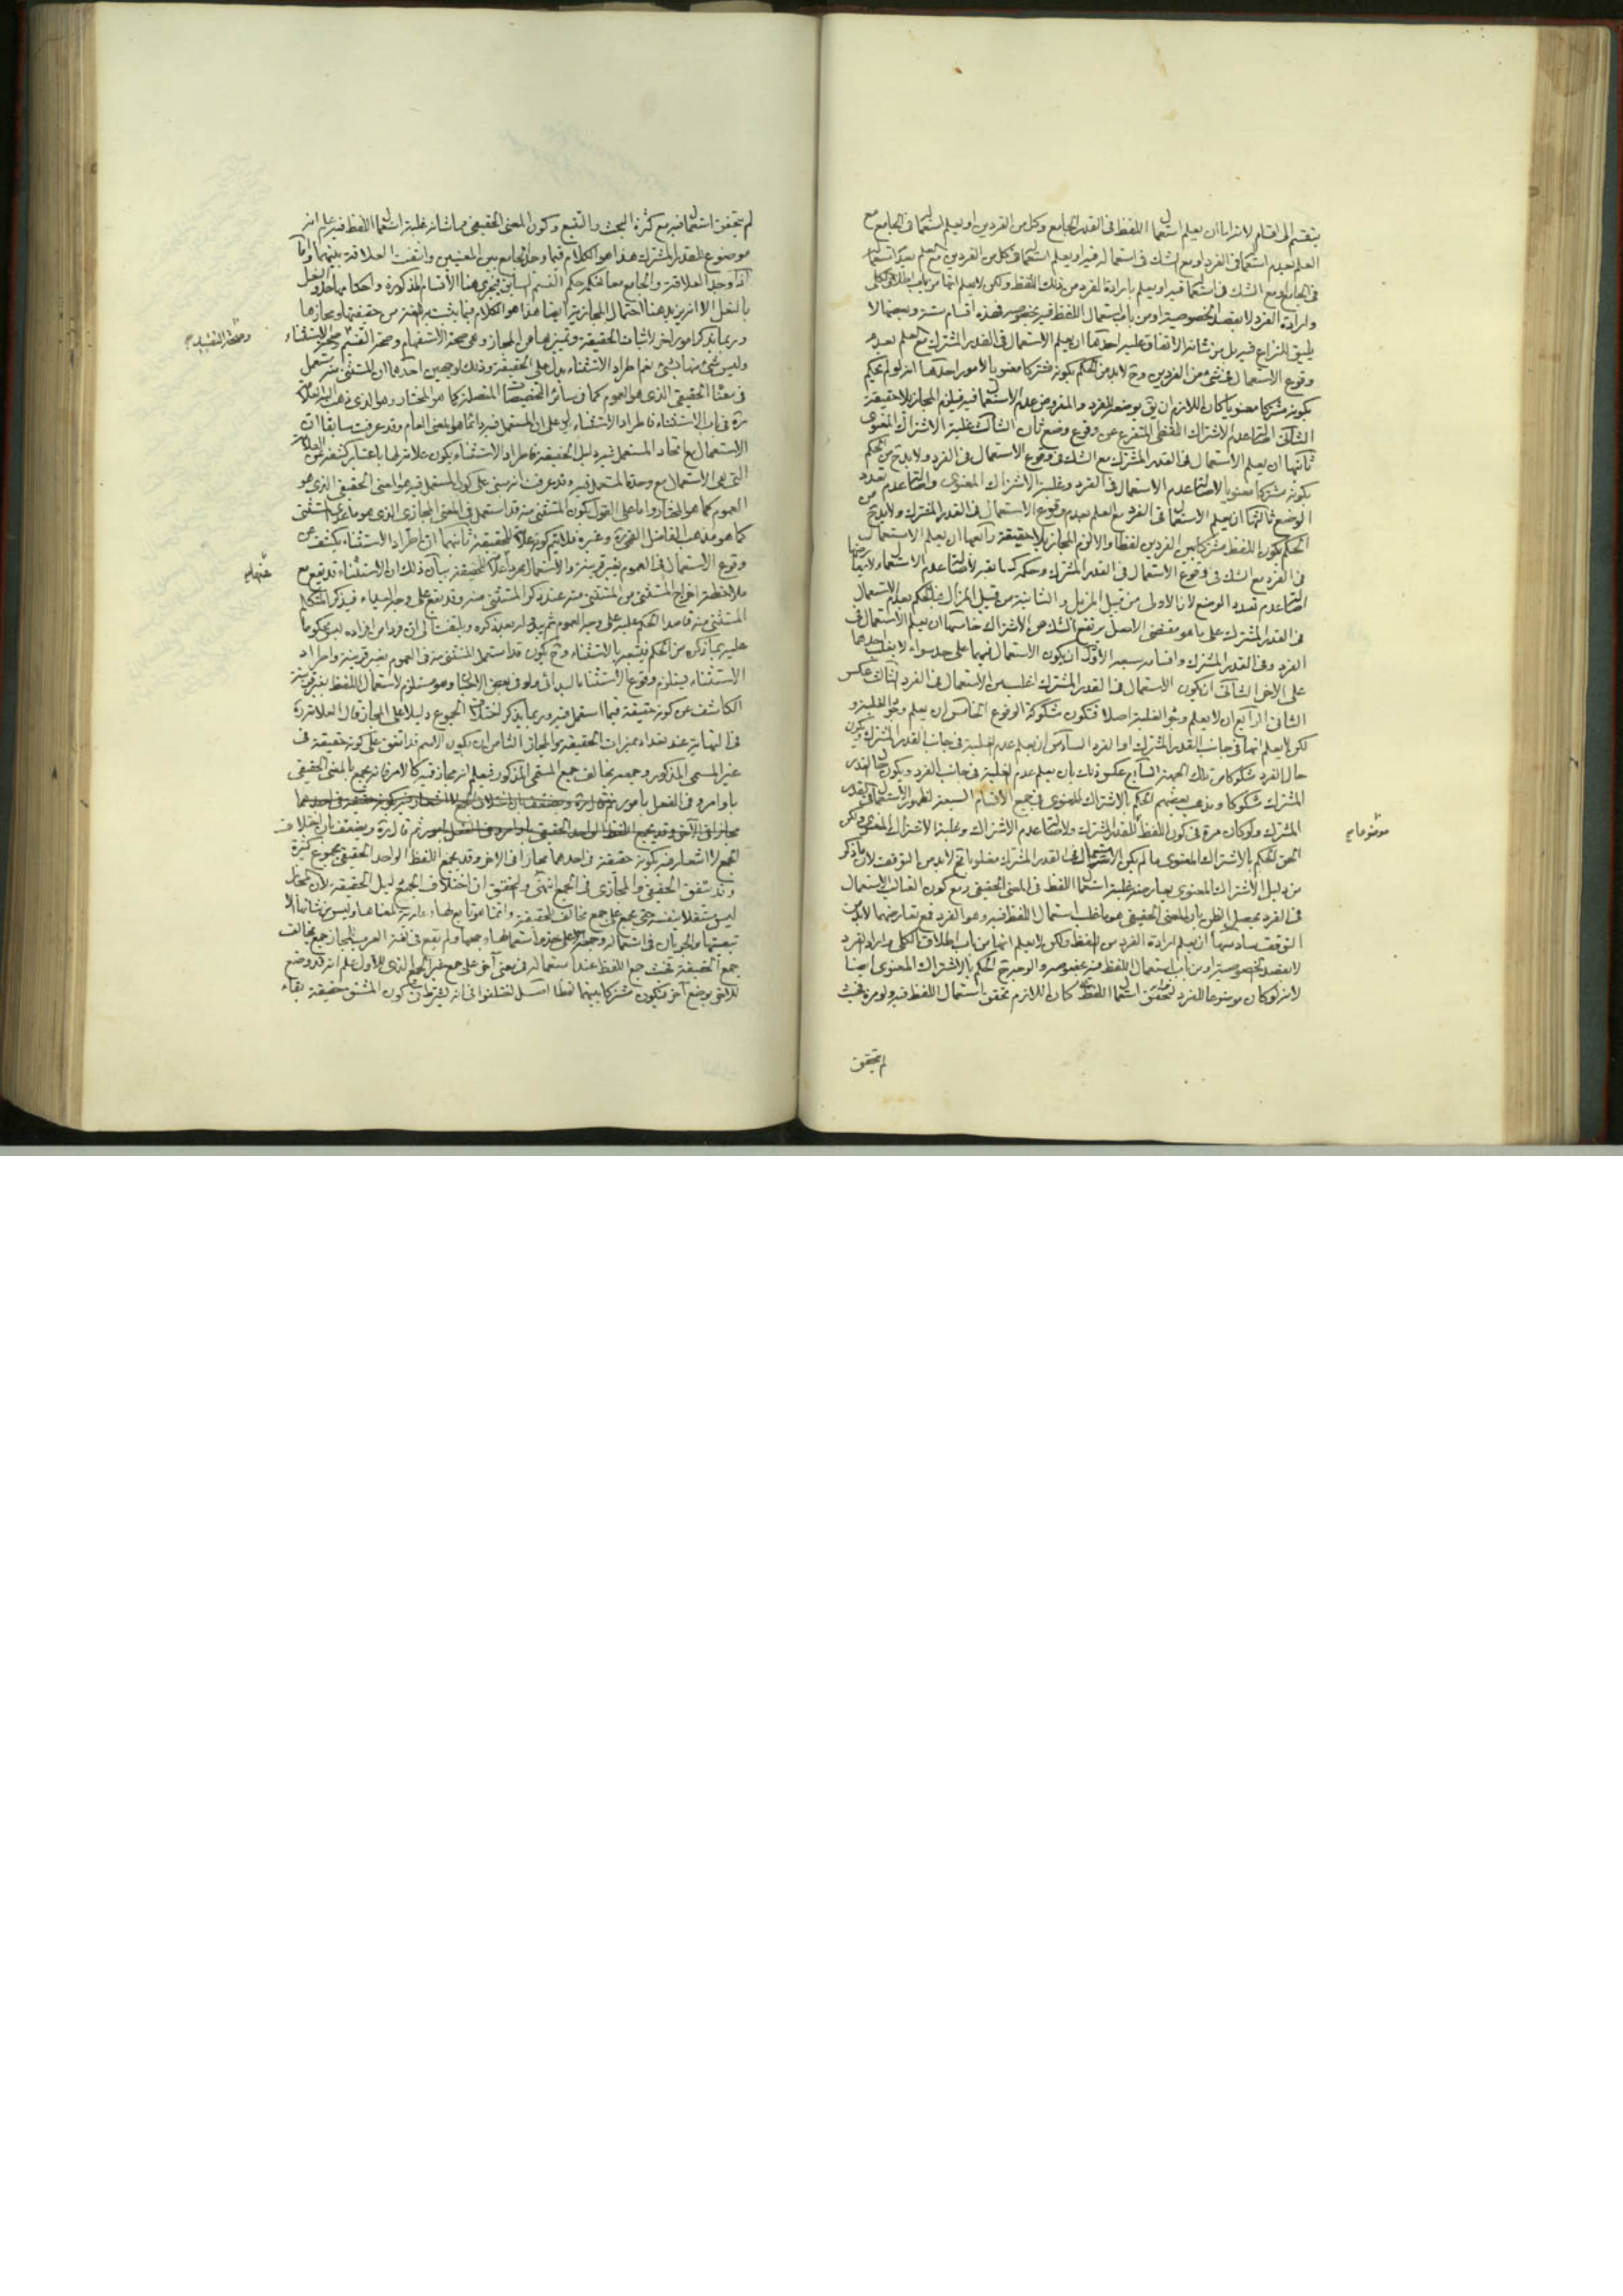 ينقسم الى اقسام لانه اما ان يعلم استعمال اللفظ فى القدر الجامع وكل من الفردين او يعلم استعماله فى الجامع مع
العلم بعدم استعماله فى الفرد او مع الشك فى استعماله فيه او يعلم استعماله فى كل من الفردين مع العلم بعدم استعماله
فى الجامع او مع الشك فى استعماله فيه او يعلم بارادة الفرد من ذلك اللفظ ولكن لا يعلم انها من باب اطلاق الكلى
وارادة الفرد لا بقصد الخصوصية او من باب استعمال اللفظ فيه بخصوصه فهذه اقسام ستة وبعضها لا
يليق النزاع فيه بل من شانه الاتفاق عليه احدها ان يعلم الاستعمال فى القدر المشترك مع العلم بعدم
وقوع الاستعمال فى شئ من الفردين وح لا بد من الحكم بكونه مشتركا معنويا لامور احدها انه لو لم يحكم
بكونه مشتركا معنويا كان اللازم ان يق بوضعه للفرد والمفروض عدم الاستعمال فيه فيلزم المجاز بلا حقيقة
الثانى اصالة عدم الاشتراك اللفظى المتفرع عن وقوع وضع ثان الثالث غلبة الاشتراك المعنوى
ثانيها ان يعلم الاستعمال فى القدر المشترك مع الشك فى وقوع الاستعمال فى الفرد ولا بد ح من الحكم
بكونه مشتركا معنويا لاصالة عدم الاستعمال فى الفرد وغلبة الاشتراك المعنوى واصالة عدم تعدد
الوضع ثالثها ان يعلم الاستعمال فى الفرد مع العلم بعدم وقوع الاستعمال فى القدر المشترك ولا بد ح من
الحكم بكون اللفظ مشتركا بين الفردين لفظا والا لزم المجاز بلا حقيقة رابعها ان يعلم الاستعمال
فى الفرد مع الشك فى وقوع الاستعمال فى القدر المشترك وحكمه كسابقه لاصالة عدم الاستعمال ولا يعارضها
اصالة عدم تعدد الوضع لان الاولى من قبيل المزيل والثانية من قبيل المزال فبالحكم بعدم الاستعمال
فى القدر المشترك على ما هو مقتضى الاصل يرتفع الشك عن الاشتراك خامسها ان يعلم الاستعمال فى
الفرد وفى القدر المشترك واقسامه سبعة الاول ان يكون الاستعمال فيهما على حد سواء لا يغلب احدهما
على الاخر الثانى ان يكون الاستعمال فى القدر المشترك اغلب من الاستعمال فى الفرد الثالث عكس
الثانى الرابع ان لا يعلم وقوع الغلبة اصلا فتكون مشكوكة الوقوع الخامس ان يعلم وقوع الغلبة و
لكن لا يعلم انها فى جانب القدر المشترك او الفرد السادس ان يعلم عدم الغلبة فى جانب القدر المشترك ويكون
حال الفرد مشكوكا من تلك الجهة السابع عكس ذلك بان يعلم عدم الغلبة فى جانب الفرد ويكون حال القدر
المشترك مشكوكا ومذهب بعضهم الحكم بالاشتراك المعنوى فى جميع الاقسام السبعة لظهور الاستعمال فى القدر
المشترك ولو كان مرة فى كون اللفظ للقدر المشترك ولاصالة عدم الاشتراك وغلبة الاشتراك المعنوى ولكن
موضوعا صح
الحق الحكم بالاشتراك المعنوى ما لم يكن الاستعمال فى القدر المشترك مغلوبا ح لا بد من التوقف لان ما ذكر
من دليل الاشتراك المعنوى يعارضه غلبة استعمال اللفظ فى المعنى الحقيقى ومع كون الغالب الاستعمال
فى الفرد يحصل الظن بان المعنى الحقيقى هو ما غلب استعمال اللفظ فيه وهو الفرد فمع تعارضهما لا بد من
التوقف سادسها ان يعلم ارادة الفرد من اللفظ ولكن لا يعلم انها من باب اطلاق الكلى وارادة الفرد
لا بقصد الخصوصية او من باب استعمال اللفظ فيه بخصوصه والوجه ح الحكم بالاشتراك المعنوى ايضا
لانه لو كان موضوعا للفرد استعمال اللفظ كان اللازم تحقق استعمال اللفظ فيه ولو مرة فحيث
لم يتحقق
لم يتحقق استعماله فيه مع كثرة البحث والتتبع وكون المعنى الحقيقى مما شانه غلبة استعمال اللفظ فيه علم انه
موضوع للقدر المشترك هذا هو الكلام فيما وجد الجامع بين المعنيين وانتفت العلاقة بينهما واما
اذا وجد العلاقة والجامع معا فحكمه حكم القسم السابق فيجرى هنا الاقسام المذكورة واحكامها حذو النعل
بالنعل الا انه يزيد هنا احتمال المجازية ايضا هذا هو الكلام فيما يثبت به اللغة من حقيقتها ومجازها
وربما يذكر امور اخر لاثبات الحقيقة وتمييزها عن المجاز وهى صحة الاستفهام وصحة التقسيم وصحة الاستثناء
وصحة التقييد صح
وليس شئ منها بشئ نعم اطراد الاستثناء يدل على الحقيقة وذلك لوجهين احدهما ان المستثنى منه يستعمل
فى معناه الحقيقى الذى هو العموم كما فى سائر التخصيصات المتصلة كما هو المختار وهو الذى ذهب اليه العلامة
ره فى باب الاستثناء فاطراد الاستثناء يدل على ان المستعمل فيه دائما هو المعنى العام وقد عرفت سابقا ان
الاستعمال مع اتحاد المستعمل فيه دليل الحقيقة فاطراد الاستثناء يكون علامة لها باعتبار كشفه عن العلامة
التى هى الاستعمال مع وحدة المستعمل فيه وقد عرفت انه مبنى على كون المستعمل فيه هو المعنى الحقيقى الذى هو
العموم كما هو المختار واما على القول بكون المستثنى منه قد استعمل فى المعنى المجازى الذى هو ما عدى المستثنى
كما هو مذهب الفاضل القمى ره وغيره فلا يتم كونه علامة للحقيقة ثانيهما ان اطراد الاستثناء يكشف عن
وقوع الاستعمال فى العموم بغير قرينة والاستعمال مجردا علامة للحقيقة بيان ذلك ان الاستثناء قد يقع مع
عنها صح
ملاحظة اخراج المستثنى من المستثنى منه عند ذكر المستثنى منه وقد يقع على وجه البداء فيذكر المتكلم
المستثنى منه قاصدا الحكم عليه على وجه العموم ثم يبدو له بعد ذكره ويلتفت الى ان فردا من افراده ليس محكوما
عليه بما ذكره من الحكم فيتبعه بالاستثناء وح يكون قد استعمل المستثنى منه فى العموم بغير قرينة واطراد
الاستثناء يستلزم وقوع الاستثناء البدائى ولو فى بعض الاحيان وهو مستلزم لاستعمال اللفظ بغير قرينة
الكاشف عن كونه حقيقة فيما استعمل فيه وربما يذكر اختلاف الجموع دليلا على المجاز قال العلامة ره
فى النهاية عند تعداد مميزات الحقيقة والمجاز الثامن ان يكون الاسم قد اتفق على كونه حقيقة فى
غير المسمى المذكور وجمعه مخالف جمع المسمى المذكور فيعلم انه مجاز فيه كالامر فانه يجمع بالمعنى الحقيقى
باوامر وفى الفعل بامور ثم قال ره ويضعف بان اختلاف الجمع لا اشعار فيه بكونه حقيقة فى احدهما
مجازا فى الاخر وقد يجمع اللفظ الواحد الحقيقى باوامر وفى الفعل بامور ثم قال ره ويضعف بان اختلاف
الجمع لا اشعار فيه بكونه حقيقة فى احدهما مجازا فى الاخر وقد يجمع اللفظ الواحد الحقيقى بجموع كثيرة
وقد يتفق الحقيقى والمجازى فى الجمع انتهى والتحقيق ان اختلاف الجمع دليل الحقيقة لان المجاز
ليس مستقلا بنفسه حتى يجمع على جمع مخالف للحقيقة وانما هو تابع لها لمعناها وليس من شانها الا
تبعيتها والجريان فى استعماله وجمعه على حذو استعمالها وجمعها ولم يقع فى لغة العرب للمجاز جمع يخالف
جمع الحقيقة فحيث جمع اللفظ عند استعماله فى معنى آخر على جمع غير الجمع الذى للاول علم انه قد وضع
للآخر بوضع آخر فيكون مشتركا بينهما لفظا اصل اختلفوا فى انه يشترط فى كون المشتق حقيقة بقاء